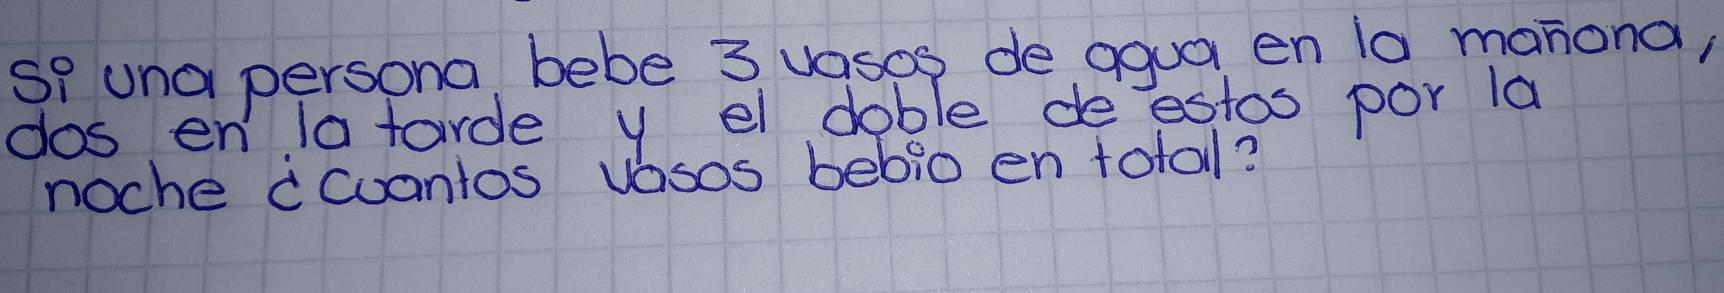 Si una persona bebe 3 vasos de agua en la mañana,
dos en la tarde y el doble de estos por la
noche ¿cuantos vasos bebio en total?